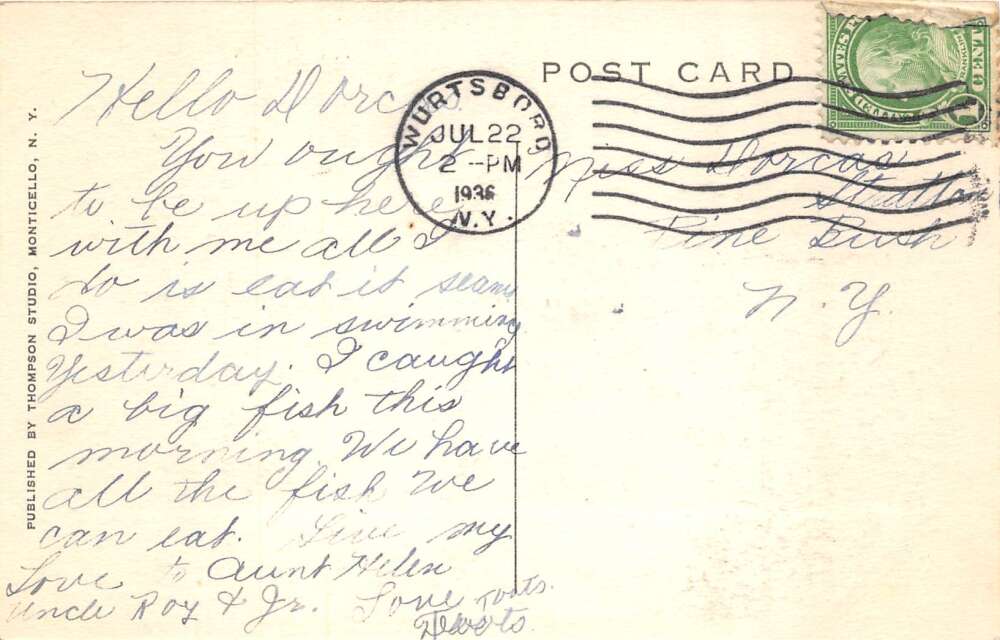 PUBLISHED BY THOMPSON STUDIO, MONTICELLO, N. Y.
Hello Dorcas
You ought
to be up here
with me all I
do is eat it seams
I was in swimming
Yesterday. I caught
a big fish this
morning We have
all the fish we
can eat. Give my
Love to Aunt Helen
Uncle Roy & Jr. Love Toots.
POST CARD
WURTSBORO
JUL 22
2-PM
1936
N.Y.
Miss Dorcas
Pine Bush
N. Y.